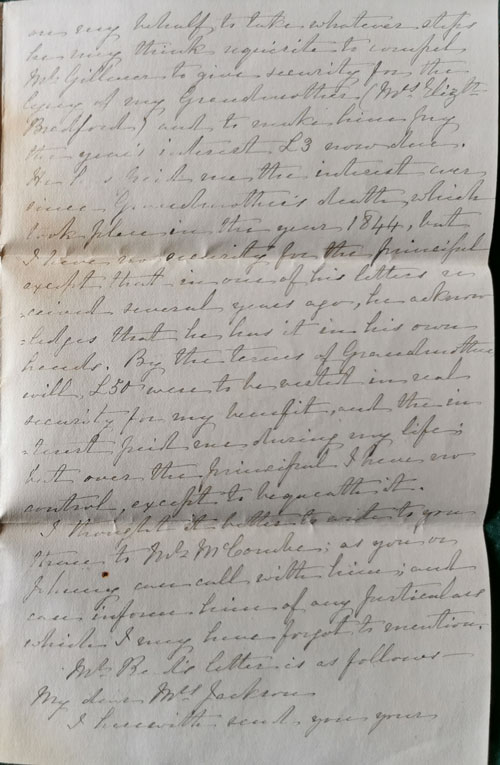 on my behalf to take whatever steps
he may think requisite to compel
Mr. Gillmer to give security for the
legacy of my Grandmother (Mrs. Elizth
Bradford) and to make him pay
the year's interest £3 now due.
He has paid me the interest ever
since Grandmother's death which
took place in the year 1844, but
I have no security for the principal
except that in one of his letters re
=ceived several years ago, he acknow
=ledges that he has it in his own
hands. By the terms of Grandmother's
will, £50 were to be vested in real
security for my benefit, and the in
=terest paid me during my life;
but over the principal I have no
control, except to bequeath it.
I thought it better to write to you
than to Mr. McCombe; as you or
Johnny can call with him; and
can inform him of any particulars
which I may have forgot to mention.
Mr. letter is as follows—
My dear Mrs. Jackson
I herewith send you your